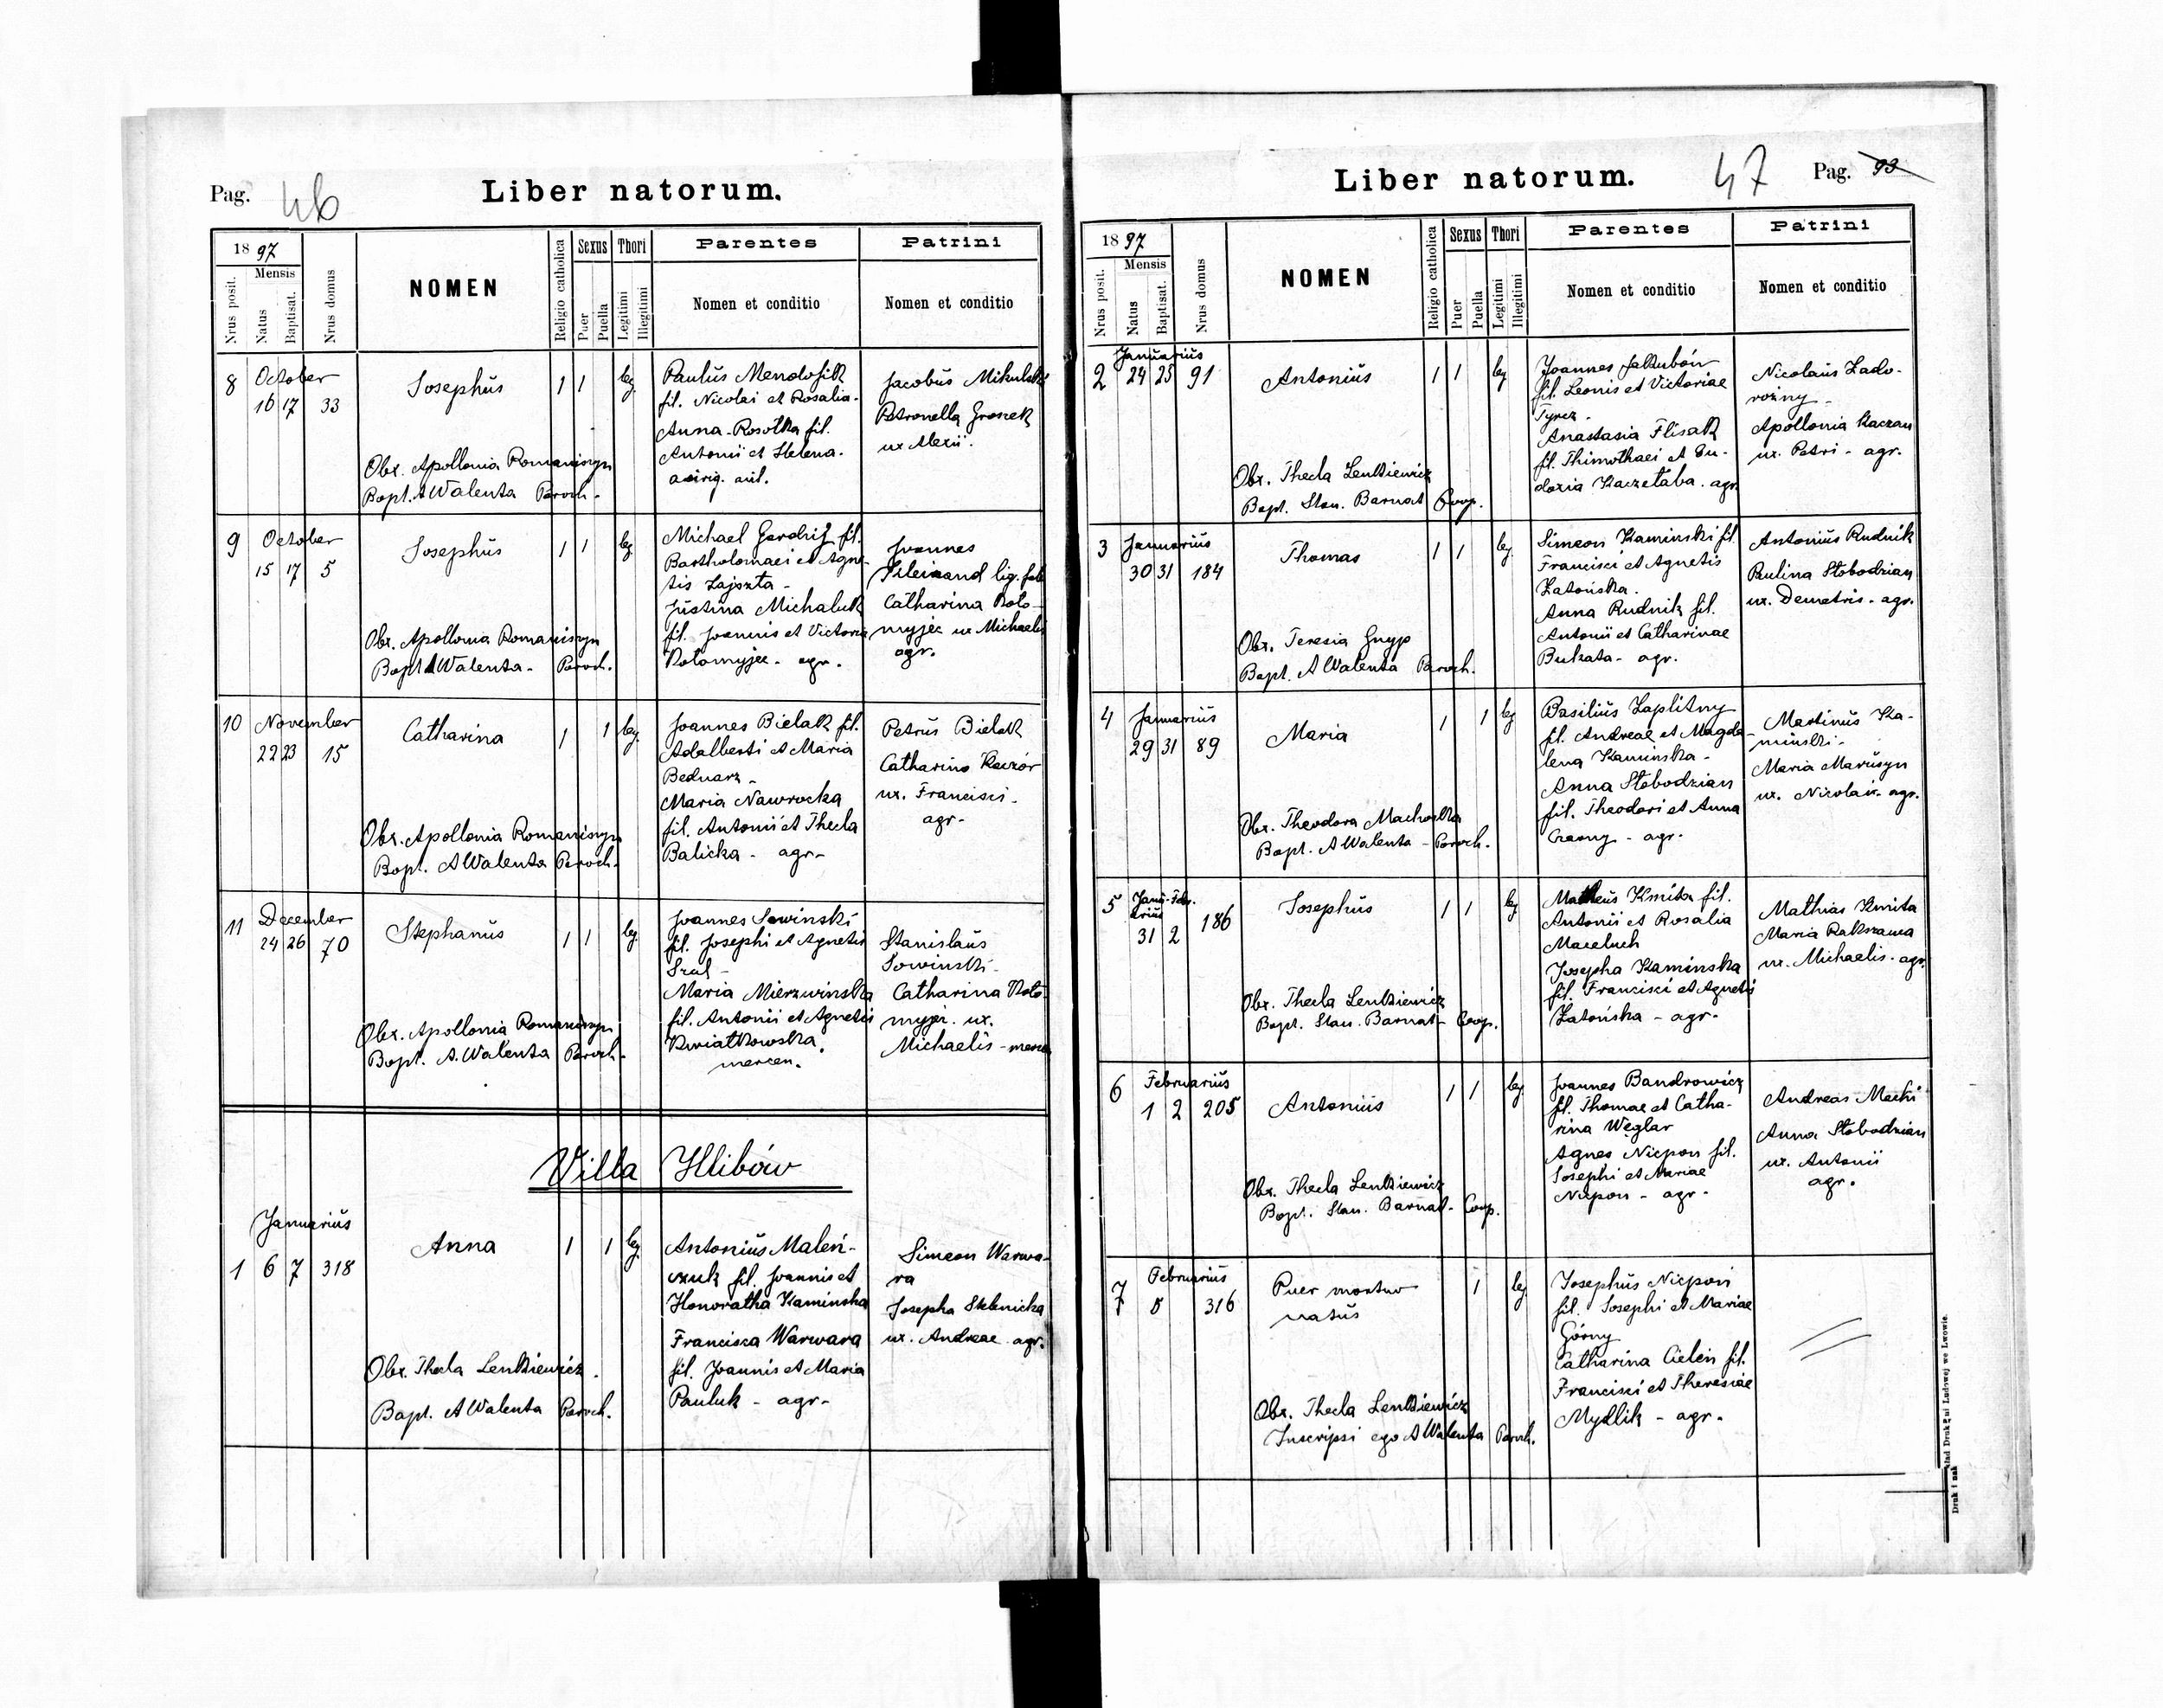 Pag. 46 Liber natorum.
1897
Mensis
Nrus posit.
Natus
Baptisat.
Nrus domus
NOMEN
Religio catholica
Sexus
Puer
Puella
Thori
Legitimi
Illegitimi
Parentes
Nomen et conditio
Patrini
Nomen et conditio
8 October
16 17 33
Josephus
1 1 leg.
Obx. Apollonia Romaniszyn
Bapt. A Walenta Paroch.
Paulus
fil. Nicolai et Rosalia
Anna Rosolka fil.
Antonii et Helena.
Jacobus Mikulski
Petronella Groszek
ux Alexii.
9 October
15 17 5
Josephus
1 1 leg.
Obx. Apollonia Romaniszyn
Bapt. A Walenta - Paroch.
Michael fil.
Bartholomaei et Agne-
tis Lajszta -
Justina Michaluk
fil. Joannis et Victoria
Kołomyjec - agr.
Joannes
Catharina Koło-
myjec ux Michaelis
agr.
10 November
22 23 15
Catharina
1 1 leg.
Obx. Apollonia Romaniszyn
Bapt. A Walenta Paroch.
Joannes Bielak fil.
Adalberti et Maria
Bednarz -
Maria Nawrocka
fil. Antonii et Thecla
Balicka - agr -
Petrus Bielak
Catharina Kaczór
ux. Francisci -
agr -
11 December
24 26 70
Stephanus
1 1 leg.
Obx. Apollonia Romaniszyn
Bapt. A. Walenta Paroch.
Joannes Sowinski
fil. Josephi et Agnetis
Szul -
Maria Mierzwinska
fil. Antonii et Agnetis
Kwiatkowska.
mercen.
Stanislaus
Sowinski -
Catharina Koło-
myjec. ux.
Michaelis -
Villa Hlibów
Januarius
1 6 7 318
Anna
1 1 leg.
Obx. Thecla Lenkiewicz.
Bapt. A Walenta Paroch.
Antonius Maleń-
czuk fil. Joannis et
Honoratha Kaminska
Francisca Warwara
fil. Joannis et Maria
Pauluk - agr -
Simeon Warwa-
ra
Josepha Stelnicka
ux. Andreae agr.
Liber natorum. 47 Pag. 93
1897
Mensis
Nrus posit.
Natus
Baptisat.
Nrus domus
NOMEN
Religio catholica
Sexus
Puer
Puella
Thori
Legitimi
Illegitimi
Parentes
Nomen et conditio
Patrini
Nomen et conditio
Januarius
2 24 25 91
Antonius
1 1 leg
Obx. Thecla Lenkiewicz
Bapt. Stan. Barnat Coop.
Joannes Jakubów
fil. Leonis et Victoriae
Tyrcz -
Anastasia Flisak
fil. Thimothaei et Eu-
doxia agr
Nicolaus Zado-
rożny -
Apollonia Kaczan
ux. Petri - agr.
3 Januarius
30 31 184
Thomas
1 1 leg
Obx. Teresia Gnyp
Bapt. A Walenta Paroch.
Simeon Kaminski fil
Francisci et Agnetis
Zatońska.
Anna Rudnik fil.
Antonii et Catharinae
Bukata - agr.
Antonius Rudnik
Paulina Słobodzian
ux. Demetris - agr.
4 Januarius
29 31 89
Maria
1 1 leg
Obx. Theodora
Bapt. A Walenta - Paroch.
Basilius Zaplitny
fil. Andreae et Magda-
lena Kaminska -
Anna Słobodzian
fil. Theodori et Anna
Czarny - agr.
Martinus Ka-
minski -
Maria Marusyn
ux. Nicolai - agr.
5 Janu- Febr.
arius
31 2 186
Josephus
1 1 leg
Obx. Thecla Lenkiewicz
Bapt. Stan. Barnat - Coop.
Matheus Kmita fil.
Antonii et Rosalia
Maceluch
Josepha Kaminska
fil. Francisci et Agnetis
Zatońska - agr.
Mathias Kmita
Maria
ux. Michaelis - agr.
6 Februarius
1 2 205
Antonius
1 1 leg
Obx. Thecla Lenkiewicz
Bapt. Stan. Barnat - Coop.
Joannes Bandrowicz
fil. Thomae et Catha-
rina Węglar
Agnes Nicpon fil.
Josephi et Mariae
Nicpon - agr -
Andreas
Anna Słobodzian
ux. Antonii
agr.
7 Februarius
7 5 316
Puer mortuo
natus
1 leg
Obx. Thecla Lenkiewicz
Inscripsi ego A Walenta Paroch.
Josephus Nicpoń
fil. Josephi et Mariae
Górny
Catharina Cieleń fil.
Francisci et Theresiae
Mydlik - agr.